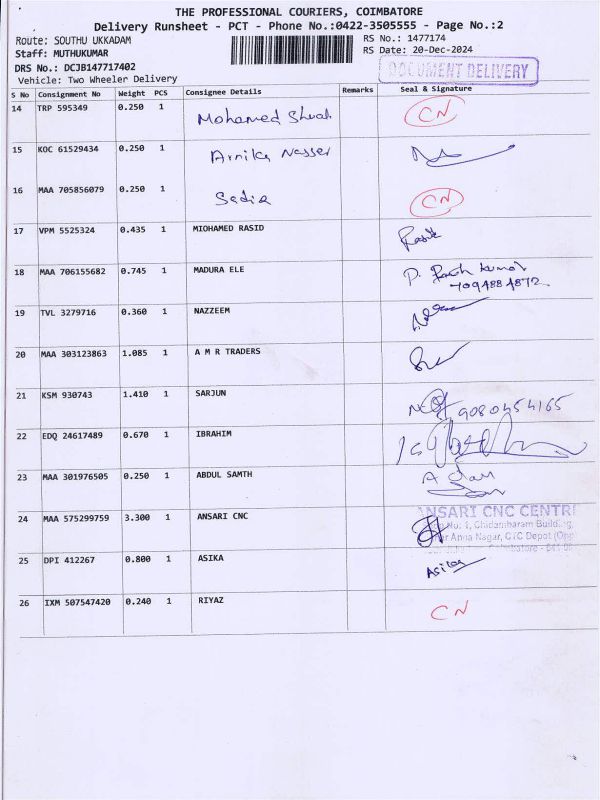 THE PROFESSIONAL COURIERS, COIMBATORE
Delivery Runsheet - PCT - Phone No.:0422-3505555 - Page No.:2
Route: SOUTHU UKKADAM RS No.: 1477174
Staff: MUTHUKUMAR RS Date: 20-Dec-2024
DRS No.: DCJB147717402 DOCUMENT DELIVERY
Vehicle: Two Wheeler Delivery
S No Consignment No Weight PCS Consignee Details Remarks Seal & Signature
14 TRP 595349 0.250 1 Mohamed CN
15 KOC 61529434 0.250 1 Arnika Nasser
16 MAA 705856079 0.250 1 Sadia CN
17 VPM 5525324 0.435 1 MIOHAMED RASID Rasik
18 MAA 706155682 0.745 1 MADURA ELE P. kumar
7094884872
19 TVL 3279716 0.360 1 NAZZEEM
20 MAA 303123863 1.085 1 A M R TRADERS
21 KSM 930743 1.410 1 SARJUN 9080454165
22 EDQ 24617489 0.670 1 IBRAHIM
23 MAA 301976505 0.250 1 ABDUL SAMTH
24 MAA 575299759 3.300 1 ANSARI CNC ANSARI CNC CENTR
No: 1, Chidambaram Building,
Anna Nagar, CTC Depot (Opp
Coimbatore - 641 00
25 DPI 412267 0.800 1 ASIKA
26 IXM 507547420 0.240 1 RIYAZ CN